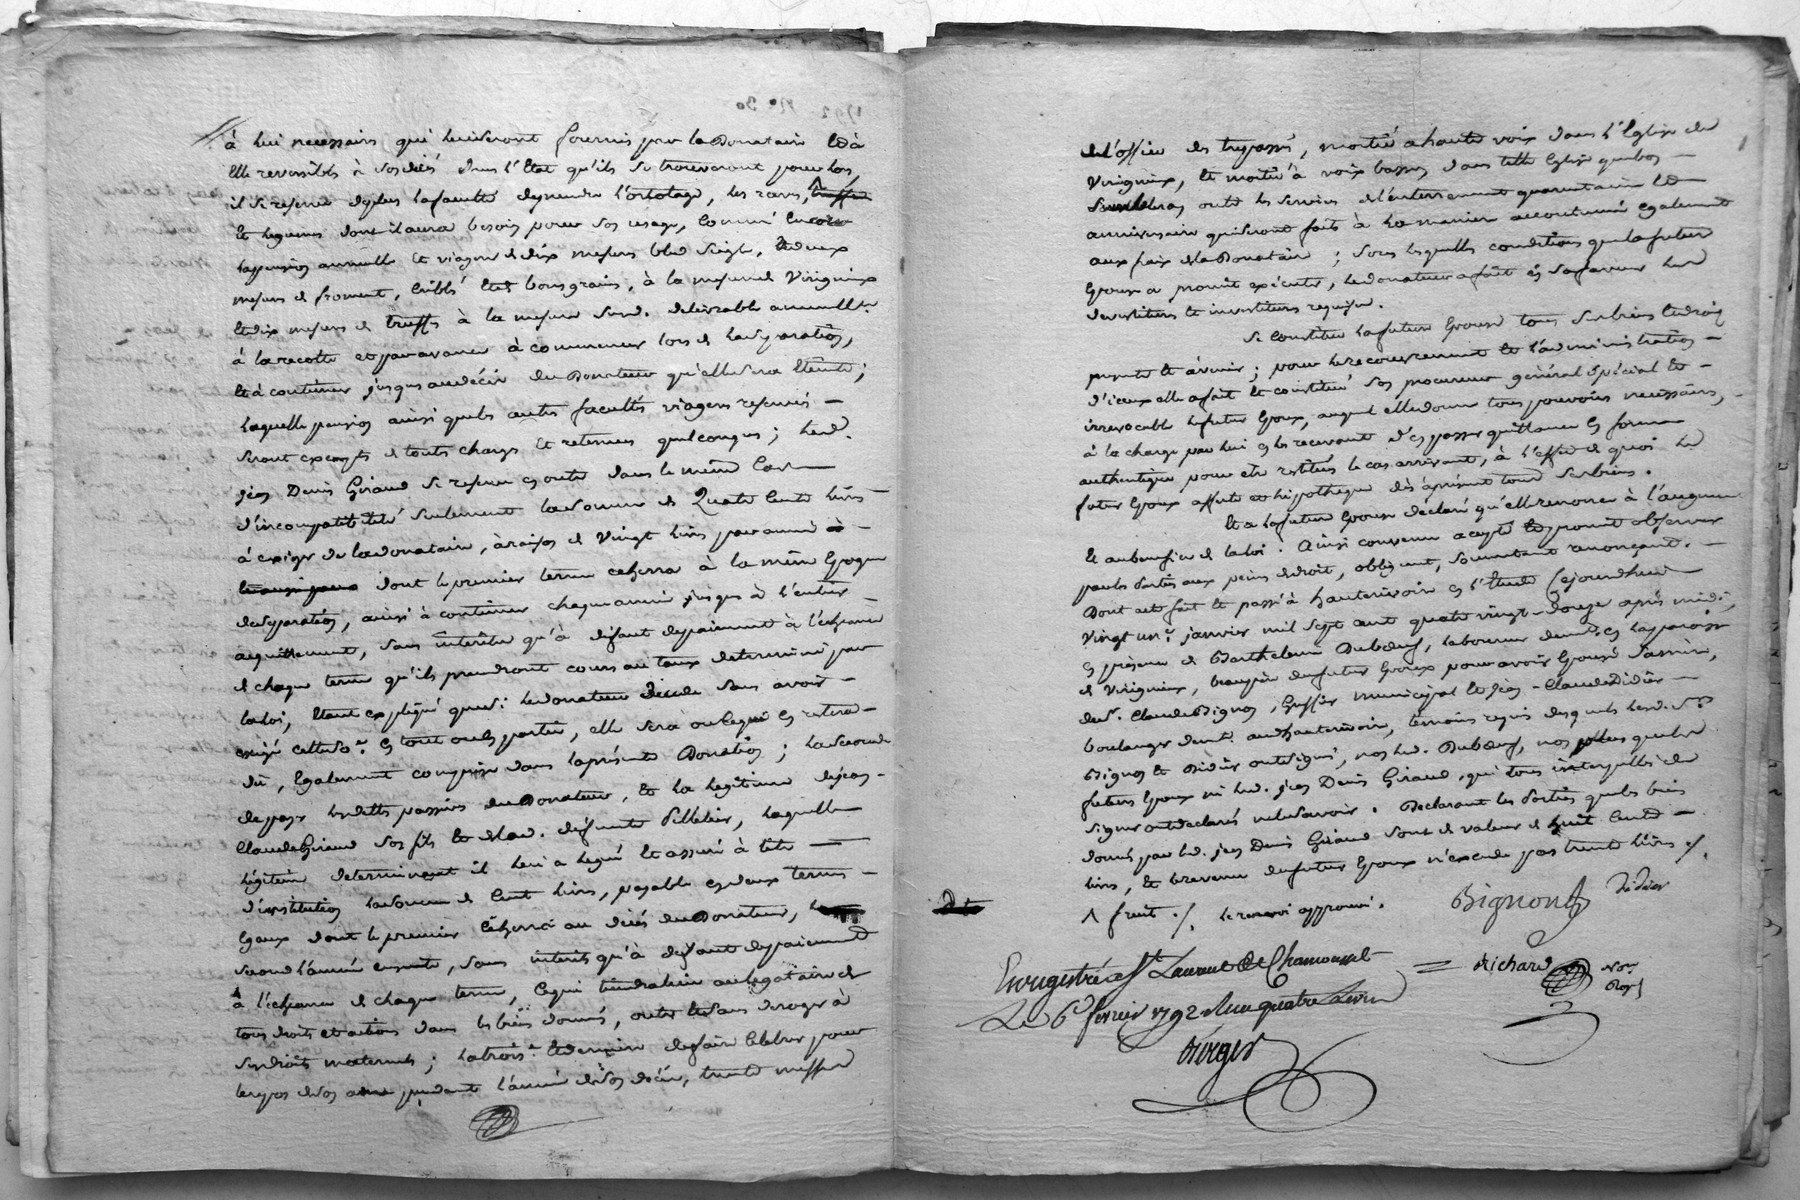 à lui necessaire qui lui seront fournis par la Donataire Et à
Elle reversibles à son décés dans l'Etat qu'ils se trouveront pour lors,
il se reserve deplus la faculté de prendre l'ortolage, les raves,
Et legumes dont il aura besoin pour son usage, Comme Encore
la pension annuelle et viagere de dix mesures bled seigle, deux
mesures de froment, Criblé Et de bons grains, à la mesure de Virigneux
Et dix mesures de truffes à la mesure susd. délivrable annuellem.t
à la recolte et par avance à commencer lors de la separation,
Et à continuer jusques au décès du Donateur qu'elle sera Eteinte;
laquelle pension ainsi que les autres facultés viageres reservées
seront exempts de toute charge et retenues quelconques; led.
jean Denis Giraud se reserve en outre dans le même Cas
d'incompatibilité seulement la somme de Quatre Cents livres
à exiger de la donataire, à raison de Vingt livres par année
dont le premier terme echerra à la même Epoque
de separation, ainsi à continuer chaque année jusques à l'entier
acquittement, sans interêts qu'à defaut de paiement à l'échéance
de chaque terme qu'ils prendront cours au taux determiné par
la loi, Etant expliqué que si le donateur decede sans avoir
exigé cette so.e en tout ou en partie, elle sera ou ce qui en restera
dû, Egalement comprise dans la présente Donation; la seconde
de payer les dettes passives du Donateur, Et la legitime de jean
Claude Giraud son fils Et de lad. défunte Pelletier, laquelle
légitime determinant il lui a legué Et assuré à titre
d'institution la somme de Cent livres, payable en deux termes
Egaux dont le premier Echerra au décès du Donateur, le
second l'année ensuite, sans interêts qu'à defaut de paiement
à l'échéance de chaque terme, ce qui tiendra lieu au legataire de
tous droits et actions dans les biens donnés, outre Et sans deroger à
ses droits maternels; la trois.e Et derniere de faire Celebrer pour
le repos de son ame pendant l'année de son décès, trente messes
de l'office des trepassés, moitié a haute voix dans l'Eglise de
Virigneux, Et moitié à voix basse, dans telle Eglise que bon
Semblera, outre les services de l'enterrement quarantaine Et
anniversaire qui seront faits à la maniere accoutumée également
aux frais de la Donataire; sous lesquelles conditions que la future
Epouse a promit exécuter, le donateur a fait en sa faveur les
devestitures Et investitures requises.
Se Constitue la future Epouse tous ses biens Et droits
presents Et àvenir; pour le recouvrement Et l'administration
d'iceux elle a fait Et constitué son procureur général Spécial Et
irrevocable le futur Epoux, auquel elle donne tous pouvoirs necessaires,
à la charge par lui en les recevant d'en passer quittance en forme
authentique pour être restitués le cas arrivant, à l'effet de quoi led
futur Epoux affecte et hipotheque dès àprésent tous ses biens.
Et a la future Epouse déclaré qu'elle renonce à l'augment
Et au benefice de la loi. Ainsi convenu accepté Et promit observer
par les Parties aux peines de droit, obligeant, soumettant renonçant.
Dont acte fait Et passé à hauterivoire en l'Etude Cejourdhui
Vingt un.e janvier mil sept cent quatre vingt-douze après midi,
en présence de Barthelemi Duboeuf, laboureur demt. en la paroisse
de Virigneux, beaupère du futur Epoux pour avoir Epousé sa mere,
des s.r Claude Bignon, officier municipal Et jean-Claude Didier
boulanger demt. aud hauterivoire, temoins requis desquels lesd. s.rs
Bignon Et Didier ont signé, non led. Duboeuf, non plus que les
futurs Epoux ni led. jean Denis Giraud, qui tous interpellés de
signer ont declaré ne le savoir. Declarant les Parties que les biens
donnés par led. jean Denis Giraud sont de valeur de huit Cents
livres, Et le revenu du futur Epoux n'excede pas trente livres ./.
^ fruit ./. le renvoi approuvé.
Bignon Didier
Enregistré a St Laurent de Chamousset = Richard Not.re Royal
Le 6 fevrier 1792 Recu quatre Livres
Auger